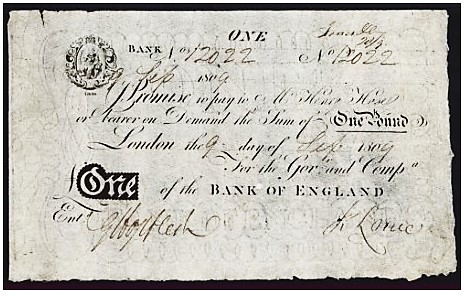 ONE
BANK No 12022 No 12022
9 Sep 1809
I Promise to pay to Mr Henry Hase
or Bearer on Demand the Sum of One Pound
London the 9 day of Sep 1809
For the Govr. and Compa.
£ One of the BANK OF ENGLAND
Entd.